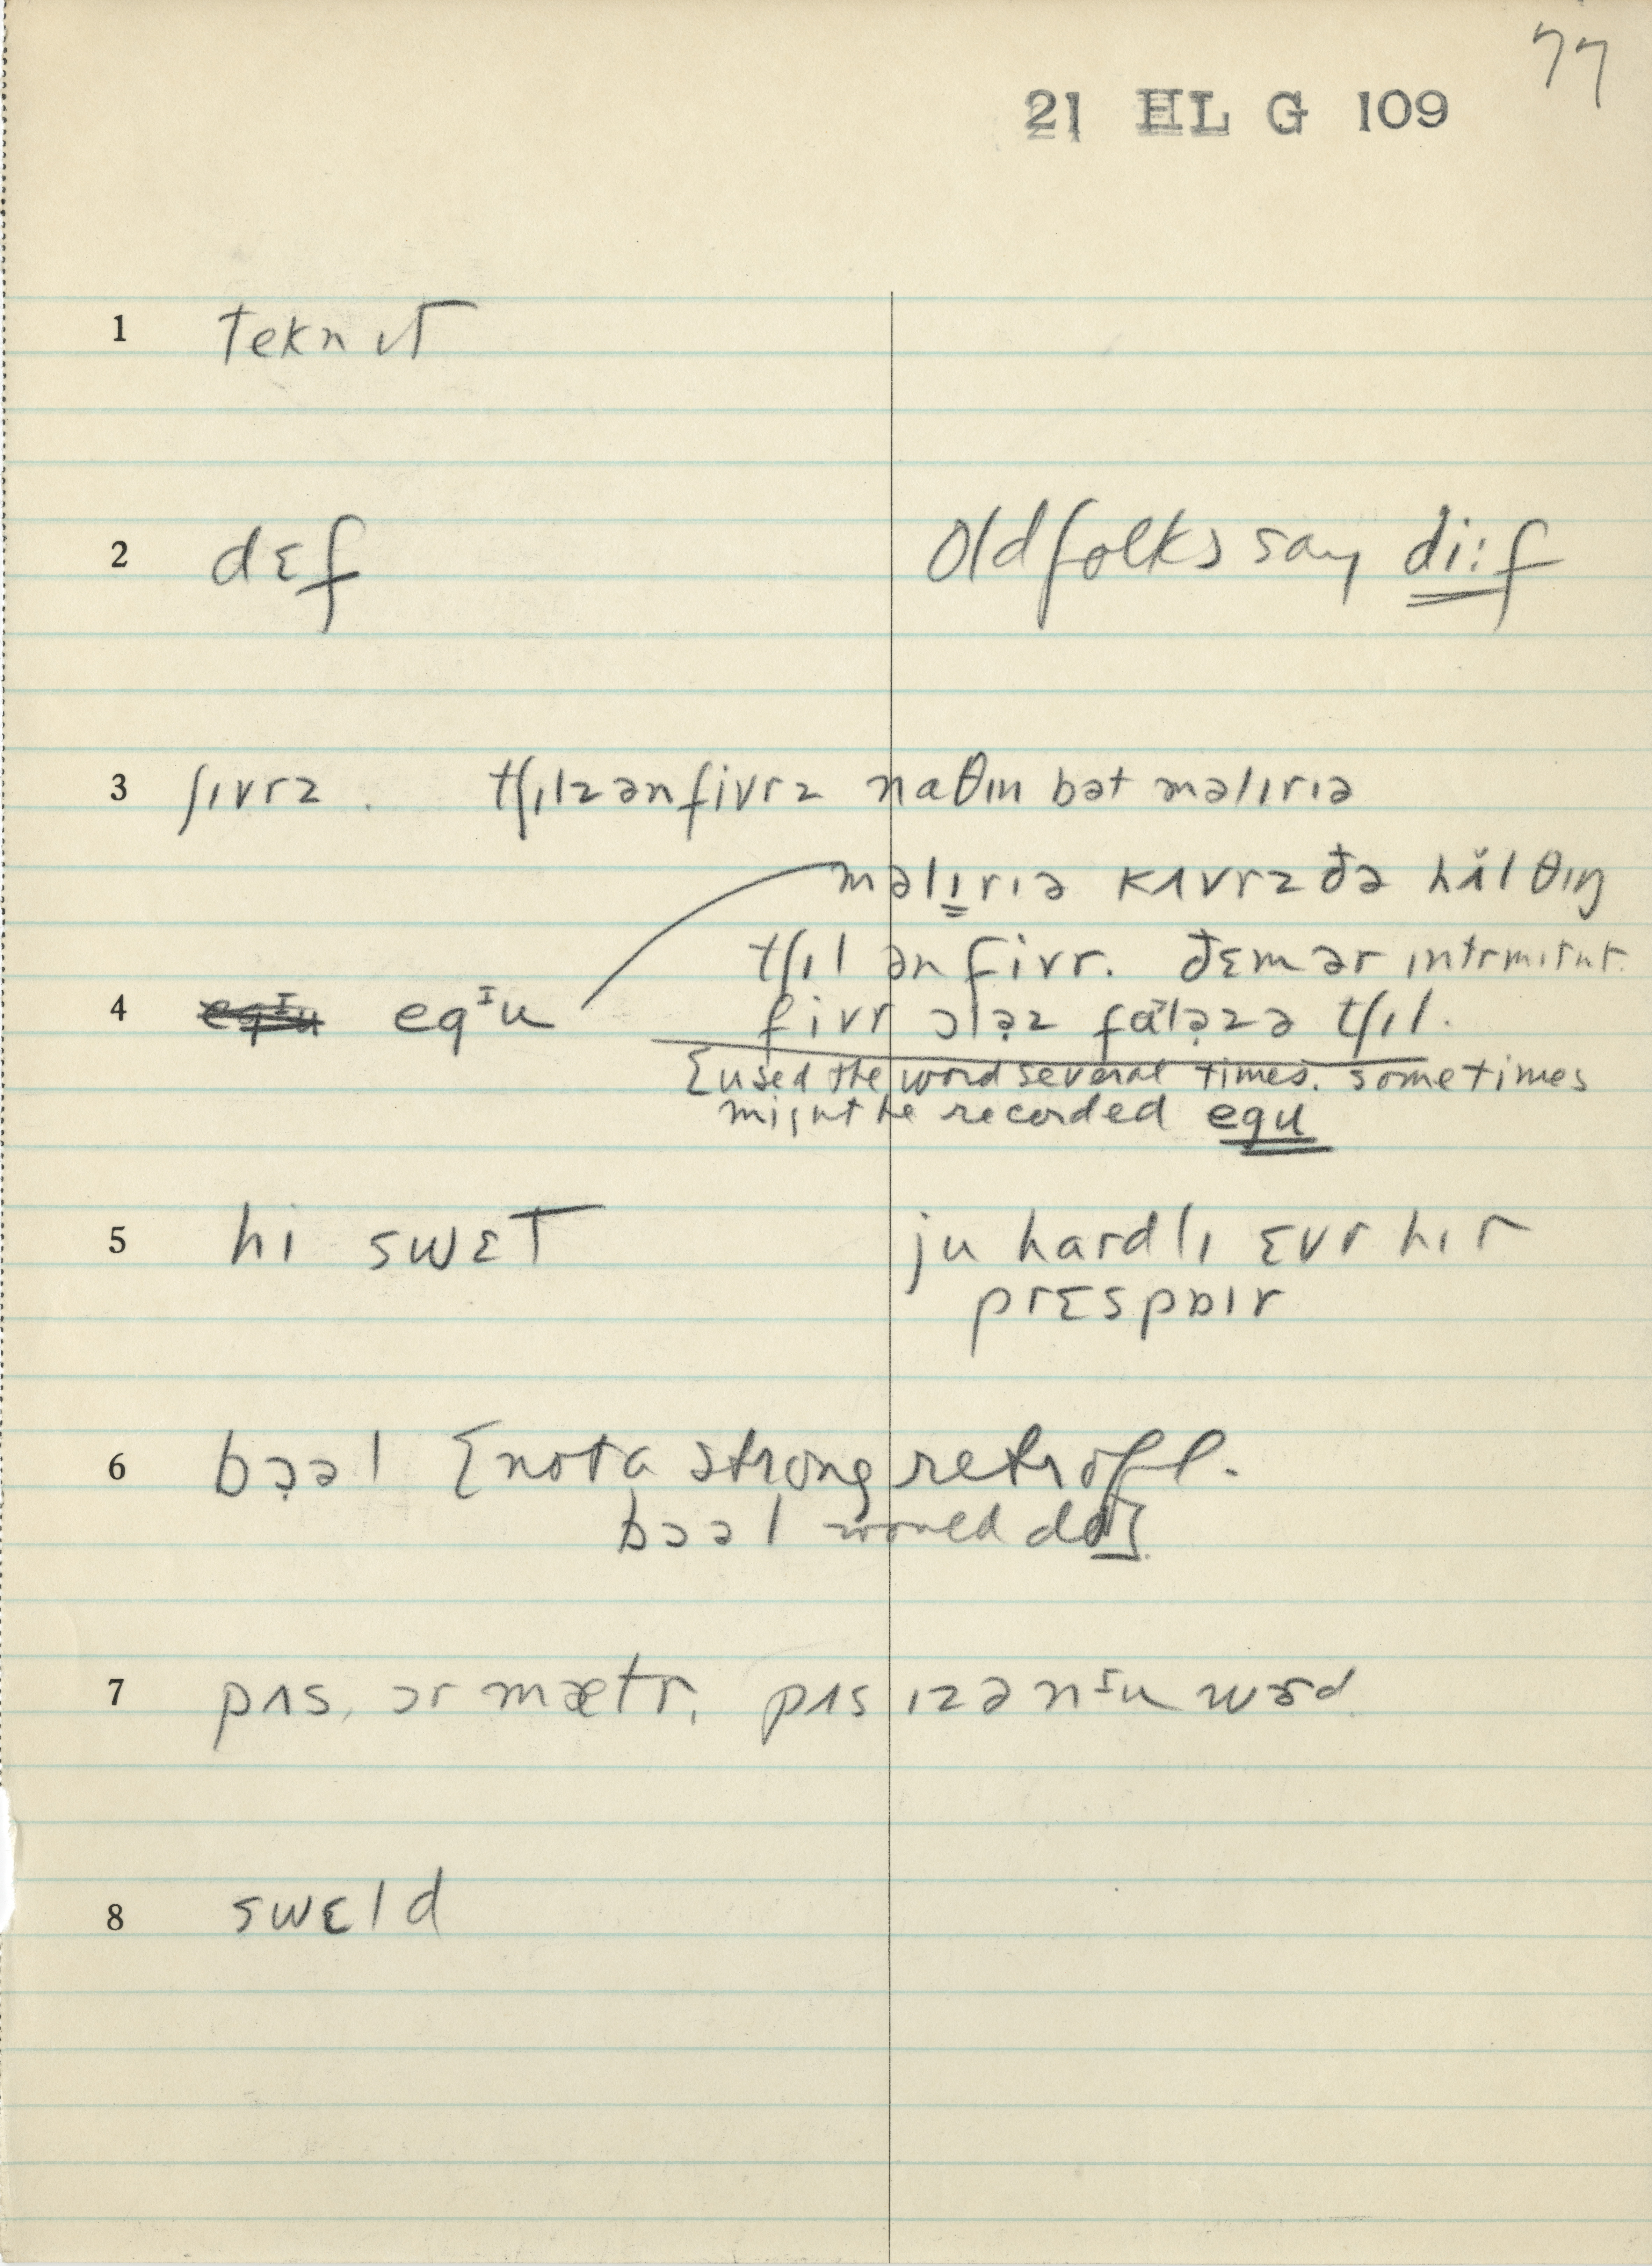 77
21 HL G 109
1 teknɪt
2 dɛf Old folks say di:f
3 ʃɪvrz. tʃɪlz ən fivrz naθɪn bət məlɪrɪə
məlɪrɪə kʌvrz ðə hʌ̆l θɪŋ
tʃɪl ən fivr. ðɛm ər ɪntrmɪtnt
4 eqᴵu eqᴵu fivr ɔlə̣z fɑlə̣z ə tʃɪl.
[used the word several times. sometimes
might be recorded equ
5 hi swɛt ju hardlɪ ɛvr hɪr
prɛspɒɪr
6 bɔ̣əl [not a strong retrofl.
bɔəl would do]
7 pʌs, ɔr mætr. pʌs ɪz ə nᴵu wɝd.
8 swɛld